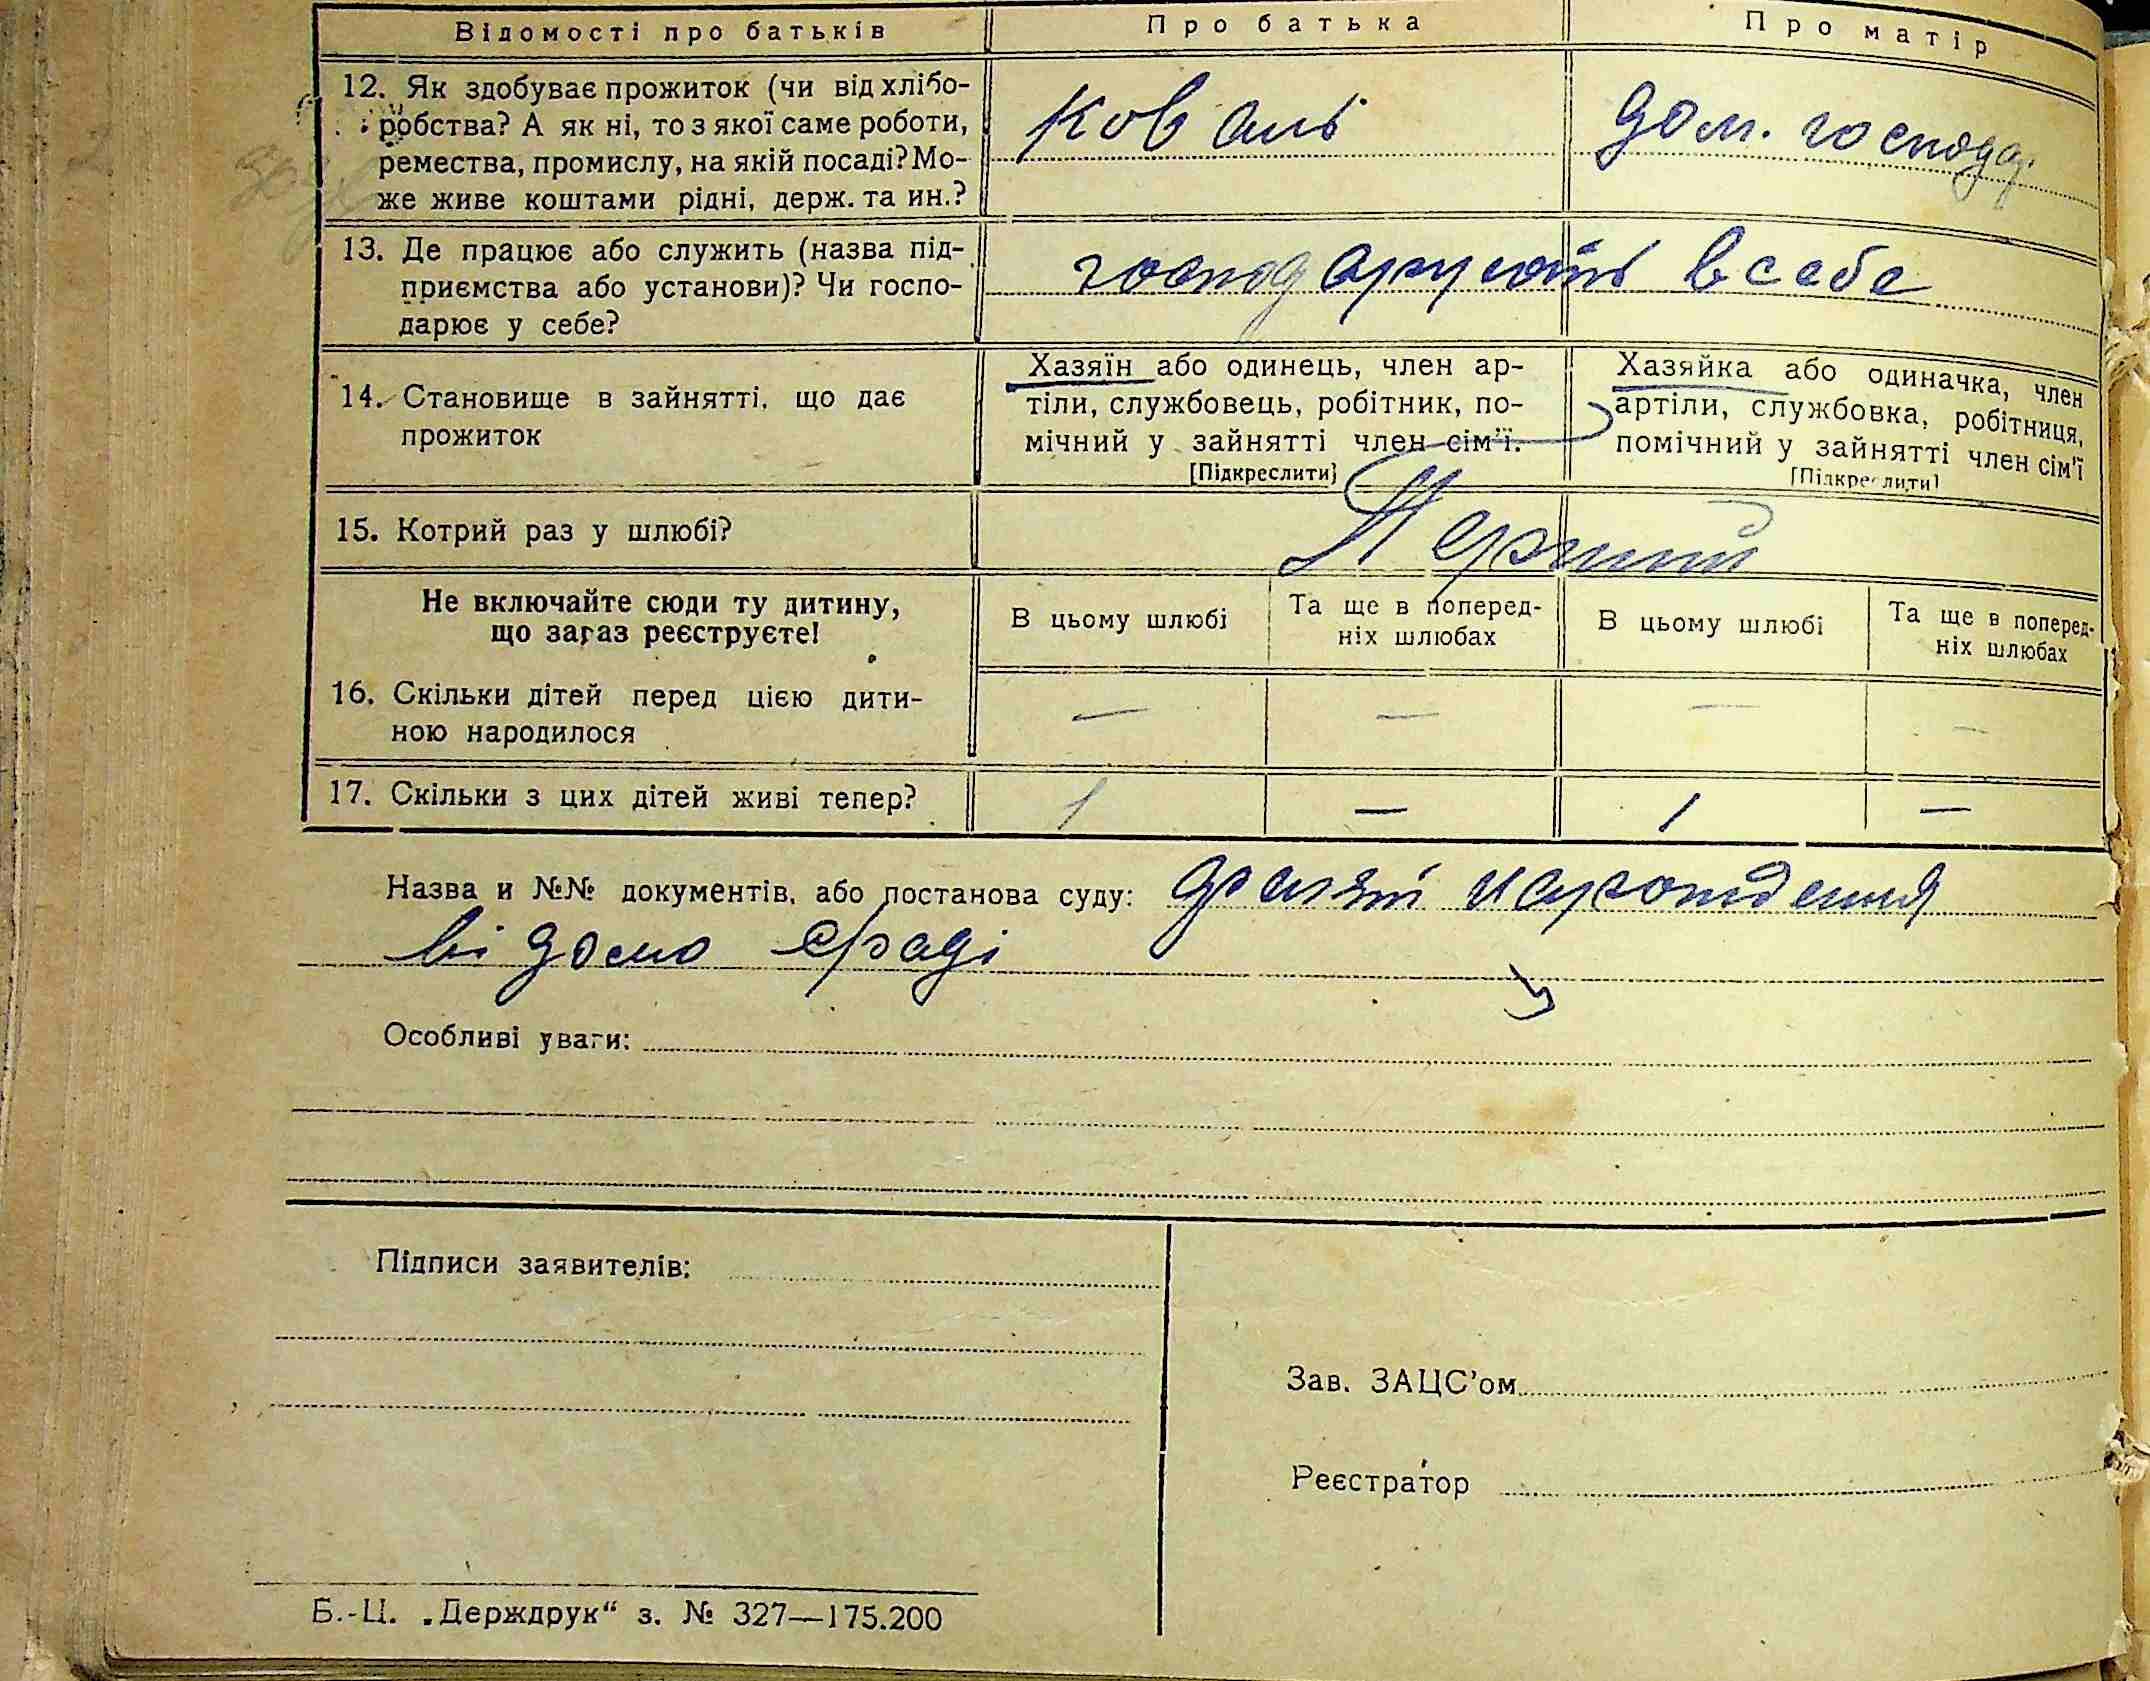 Відомості про батьків Про батька Про матір
12. Як здобуває прожиток (чи від хлібо-
робства? А як ні, то з якої саме роботи,
ремества, промислу, на якій посаді? Мо-
же живе коштами рідні, держ. та ин.?
Коваль
дом. господ.
13. Де працює або служить (назва під-
приємства або установи)? Чи госпо-
дарює у себе?
господарують в себе
14. Становище в зайнятті, що дає
прожиток
Хазяїн або одинець, член ар-
тіли, службовець, робітник, по-
мічний у зайнятті член сім'ї.
[Підкреслити]
Хазяйка або одиначка, член
артіли, службовка, робітниця,
помічний у зайнятті член сім'ї
[Підкреслити]
15. Котрий раз у шлюбі?
Перший
Не включайте сюди ту дитину,
що зараз реєструєте!
В цьому шлюбі
Та ще в поперед-
ніх шлюбах
В цьому шлюбі
Та ще в поперед-
ніх шлюбах
16. Скільки дітей перед цією дити-
ною народилося
— — — —
17. Скільки з цих дітей живі тепер?
1 — 1 —
Назва и №№ документів, або постанова суду:
відомо
Особливі уваги:
Підписи заявителів:
Зав. ЗАЦС'ом
Реєстратор
Б.-Ц. „Держдрук“ з. № 327—175.200